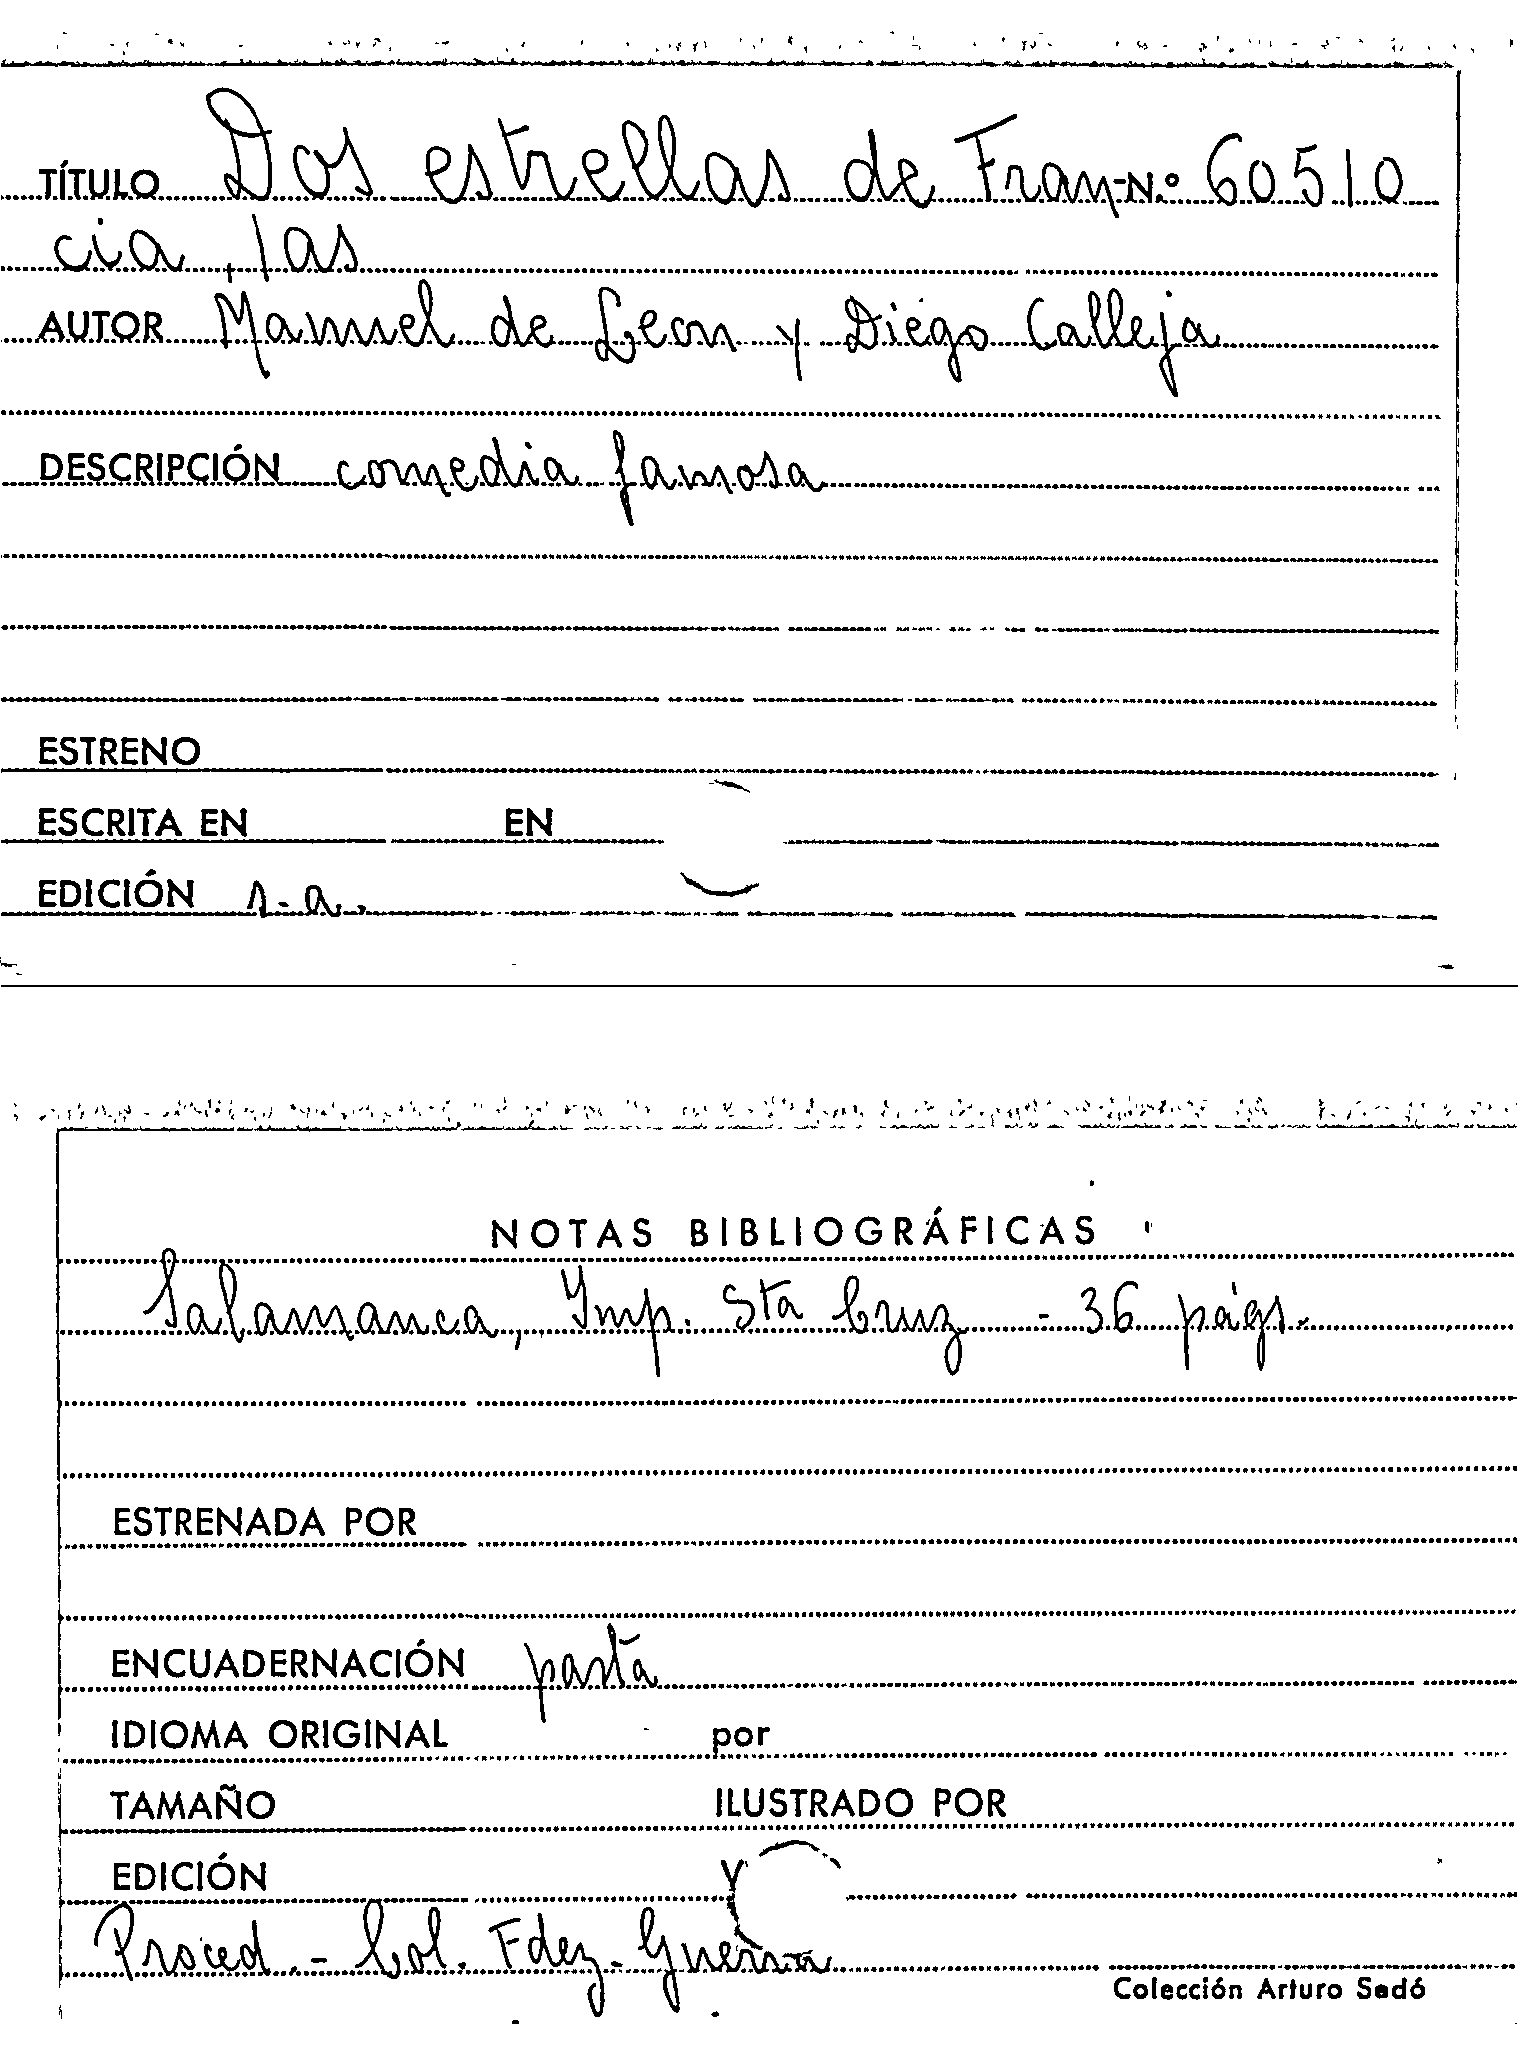 TÍTULO Dos estrellas de Fran- N.º 60510
cia, las
AUTOR Manuel de Leon y Diego Calleja
DESCRIPCIÓN comedia famosa
ESTRENO
ESCRITA EN EN
EDICIÓN s.a.
NOTAS BIBLIOGRÁFICAS
Salamanca, Imp. Sta Cruz - 36 págs.
ESTRENADA POR
ENCUADERNACIÓN pasta
IDIOMA ORIGINAL por
TAMAÑO ILUSTRADO POR
EDICIÓN
Proced.- Col. Fdez-Guerra
Colección Arturo Sedó